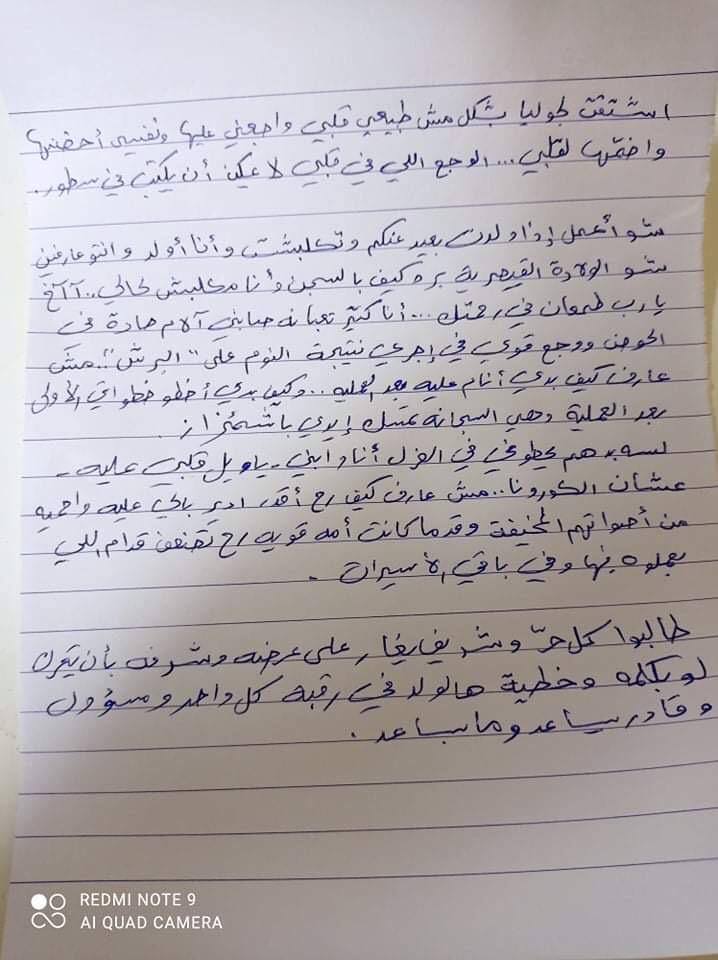 اشتقت لجوليا بشكل مش طبيعي قلبي واجعني عليها ونفسي أحضنها
واضمّها لقلبي... الوجع اللي في قلبي لا يمكن أن يكتب في سطور.
شو أعمل إذا ولدت بعيد عنكم وتكلبشت وأنا أولد وانتو عارفين
شو الولادة القيصرية بره كيف بالسجن وأنا مكلبش لحالي.. آآخ
يا رب طمعان في رحمتك... أنا كثير تعبانه صابني آلام حادة في
الحوض ووجع قوي في إجري نتيجة النوم على "البرش".. مش
عارف كيف بدي أنام عليه بعد العملية.. وكيف بدي أخطو خطواتي الأولى
بعد العملية وهي السجانة تمسك إيدي باشمئزاز.
لسه بدهم يحطوني في العزل أنا وابني - يا ويل قلبي عليه -
عشان الكورونا.. مش عارف كيف رح أقدر ادير بالي عليه واحميه
من أصواتهم المخيفة وقد ما كانت أمه قويه رح تضعف قدام اللي
بعملوه فيها وفي باقي الأسيرات.
طالبوا كل حرّ وشريف يغار على عرضه وشرفه بأن يتحرك
لو بكلمه وخطية هالولد في رقبة كل واحد ومسؤول
وقادر يساعد وما بساعد.
REDMI NOTE 9
AI QUAD CAMERA